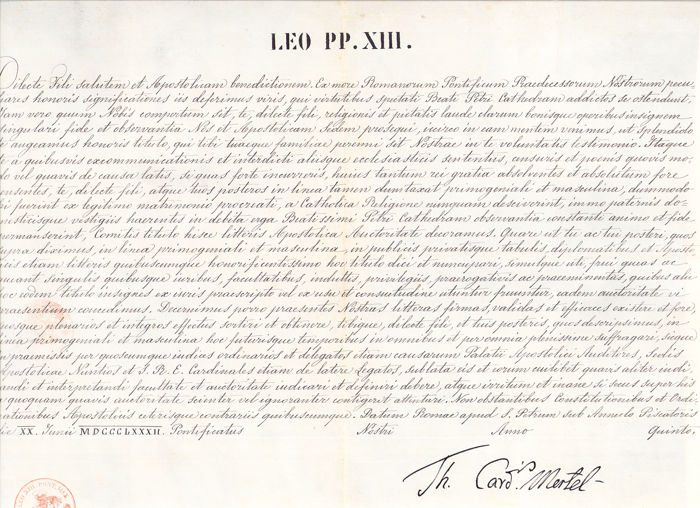 LEO PP. XIII.
Dilecte Fili salutem et Apostolicam benedictionem. Ex more Romanorum Pontificum Praedecessorum Nostrorum pecu-
iares honoris significationes iis deferimus viris, qui virtutibus spectati Beati Petri Cathedram addictos se ostendunt.
am vero quum Nobis compertum sit, te, dilecte fili, religionis et pietatis laude clarum bonisque operibus insignem
singulari fide et observantia Nos et Apostolicam Sedem prosequi, icirco in eam mentem venimus, ut splendido
e augeamus honoris titulo, qui tibi tuaeque familiae premi set Nostrae in te voluntatis testimonio. Itaque
e a quibusvis excommunicationis et interdicti aliisque ecclesiasticis sententiis, censuris et poenis quovis mo-
do vel quavis de causa latis, si quas forte incurreris, huius tantum rei gratia absolventes et absolutum fore
ensentes, te, dilecte fili, atque tuos posteros in linea tamen dumtaxat primogeniali et masculina, dummodo
i fuerint ex legitimo matrimonio procreati, a Catholica Religione nunquam desciverint, immo paternis do-
mesticisque vestigiis haerentes in debita erga Beatissimi Petri Cathedram observantia constanti animo et fide
ermanserint, Comitis titulo hisce litteris Apostolica Auctoritate decoramus. Quare ut tu ac tui posteri, quos
supra diximus, in linea primogeniali et masculina in publicis privatisque tabulis, diplomatibus et
icis etiam litteris quibuscumque honorificentissimo hoc titulo dici et nuncupari, simulque uti, frui queas ac
queant singulis quibusque iuribus, facultatibus, indultis, privilegiis, praerogativis ac praeeminentiis, quibus alii
oc eodem titulo insignes ex iuris praescripto vel ex usu et consuetudine utuntur fruuntur, eadem auctoritate vi
praesentium concedimus. Decernimus porro praesentes Nostras litteras firmas, validas et efficaces existere et fore,
uosque plenarios et integros effectus sortiri et obtinere, tibique, dilecte fili, et tuis posteris, quos descripsimus, in
inea primogeniali et masculina hoc futurisque temporibus in omnibus et per omnia plenissime suffragari, sicque
n praemissis per quoscumque iudices ordinarios et delegatos etiam causarum Palatii Apostolici Auditores, Sedis
postolicae Nuntios et S. R. E. Cardinales etiam de latere Legatos, sublata eis et eorum cuilibet quavis aliter iudi-
andi et interpretandi facultate et auctoritate iudicari et definiri debere, atque irritum et inane si secus super his
a quoquam quavis auctoritate scienter vel ignoranter contigerit attentari. Non obstantibus Constitutionibus et Ordi-
ationibus Apostolicis ceterisque contrariis quibuscumque. Datum Romae apud S. Petrum sub Annulo Piscatoris
die XX. Junii MDCCCLXXXII. Pontificatus Nostri Anno Quinto.
Th. Card.lis Mertel
LEO XIII PONT. MAX.